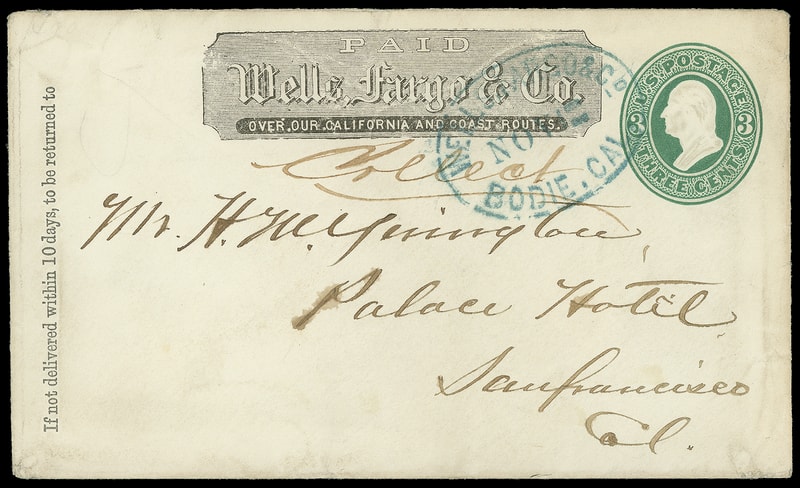 PAID
Wells, Fargo & Co.
OVER OUR CALIFORNIA AND COAST ROUTES.
U.S. POSTAGE
3 3
THREE CENTS
WELLS FARGO & CO.
NO
BODIE, CAL
Collect
Mr. H. M. Yerington
Palace Hotel
Sanfrancisco
Cl.
If not delivered within 10 days, to be returned to